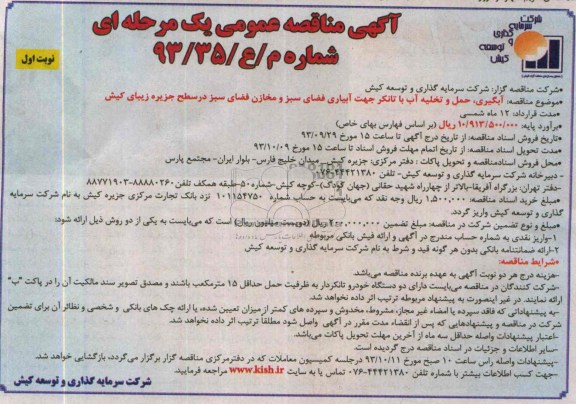 شرکت
سرمایه
گذاری
و
توسعه
کیش
آگهی مناقصه عمومی یک مرحله ای
شماره م/ع/۹۳/۳۵
نوبت اول
•شرکت مناقصه گزار: شرکت سرمایه گذاری و توسعه کیش
•موضوع مناقصه: آبگیری، حمل و تخلیه آب با تانکر جهت آبیاری فضای سبز و مخازن فضای سبز درسطح جزیره زیبای کیش
-مدت قرارداد: ۱۲ ماه شمسی
•برآورد پایه: ۱۰/۹۱۳/۵۰۰/۰۰۰ ریال (بر اساس فهارس بهای خاص)
•تاریخ فروش اسناد مناقصه: از تاریخ درج آگهی تا ساعت ۱۵ مورخ ۹۳/۰۹/۲۹
•مدت تحویل اسناد مناقصه: از تاریخ اتمام مهلت فروش اسناد تا ساعت ۱۵ مورخ ۹۳/۱۰/۰۹
•محل فروش اسنادمناقصه و تحویل پاکات : دفتر مرکزی: جزیره کیش- میدان خلیج فارس- بلوار ایران- مجتمع پارس
- دبیرخانه شرکت سرمایه گذاری و توسعه کیش- تلفن: ۴۴۴۲۱۳۸۰-۰۷۶
-دفتر تهران: بزرگراه آفریقا-بالاتر از چهارراه شهید حقانی (جهان کودک)-کوچه کیش-شماره ۵۰-طبقه همکف تلفن ۸۸۸۸۰۲۶۰-۸۸۷۷۱۹۰۳
•مبلغ خرید اسناد مناقصه: ۱,۵۰۰,۰۰۰ ریال وجه نقد که می‌بایست به حساب شماره ۱۰۱۱۵۴۷۵۰ نزد بانک تجارت مرکزی جزیره کیش به نام شرکت سرمایه
گذاری و توسعه کیش واریز گردد.
•مبلغ و نوع تضمین شرکت در مناقصه: مبلغ تضمین ۲۰۰,۰۰۰,۰۰۰ ریال (دویست میلیون ریال) است که می‌بایست به یکی از دو روش ذیل ارائه شود:
۱-واریز نقدی به شماره حساب مندرج در آگهی و ارائه فیش بانکی مربوطه
۲-ارائه ضمانتنامه بانکی بدون هر گونه قید و شرط به نام شرکت سرمایه گذاری و توسعه کیش
•شرایط مناقصه:
-هزینه درج هر دو نوبت آگهی به عهده برنده مناقصه می‌باشد.
-شرکت کنندگان در مناقصه می‌بایست دارای دو دستگاه خودرو تانکردار به ظرفیت حمل حداقل ۱۵ مترمکعب باشند و مصدق تصویر سند مالکیت آن را در پاکت "ب"
ارائه نمایند. در غیر اینصورت به پیشنهاد مربوطه ترتیب اثر داده نخواهد شد.
-به پیشنهاداتی که فاقد سپرده یا امضاء غیر مجاز، مشروط، مخدوش و سپرده های کمتر از میزان تعیین شده، یا ارائه چک های بانکی و شخصی و نظائر آن برای تضمین
شرکت در مناقصه و پیشنهادهایی که پس از انقضاء مدت مقرر در آگهی واصل شود مطلقا ترتیب اثر داده نخواهد شد.
-اعتبار پیشنهادات واصله حداقل سه ماه از آخرین مهلت تحویل پاکات می‌باشد.
-سایر اطلاعات و جزئیات در اسناد مناقصه درج گردیده است.
-پیشنهادات واصله راس ساعت ۱۰ صبح مورخ ۹۳/۱۰/۱۱ درجلسه کمیسیون معاملات که در دفترمرکزی مناقصه گزار برگزار می‌گردد، بازگشایی خواهد شد.
-جهت کسب اطلاعات بیشتر با شماره تلفن ۴۴۴۲۱۳۸۰-۰۷۶ تماس یا به سایت www.kish.ir مراجعه فرمایید.
شرکت سرمایه گذاری و توسعه کیش